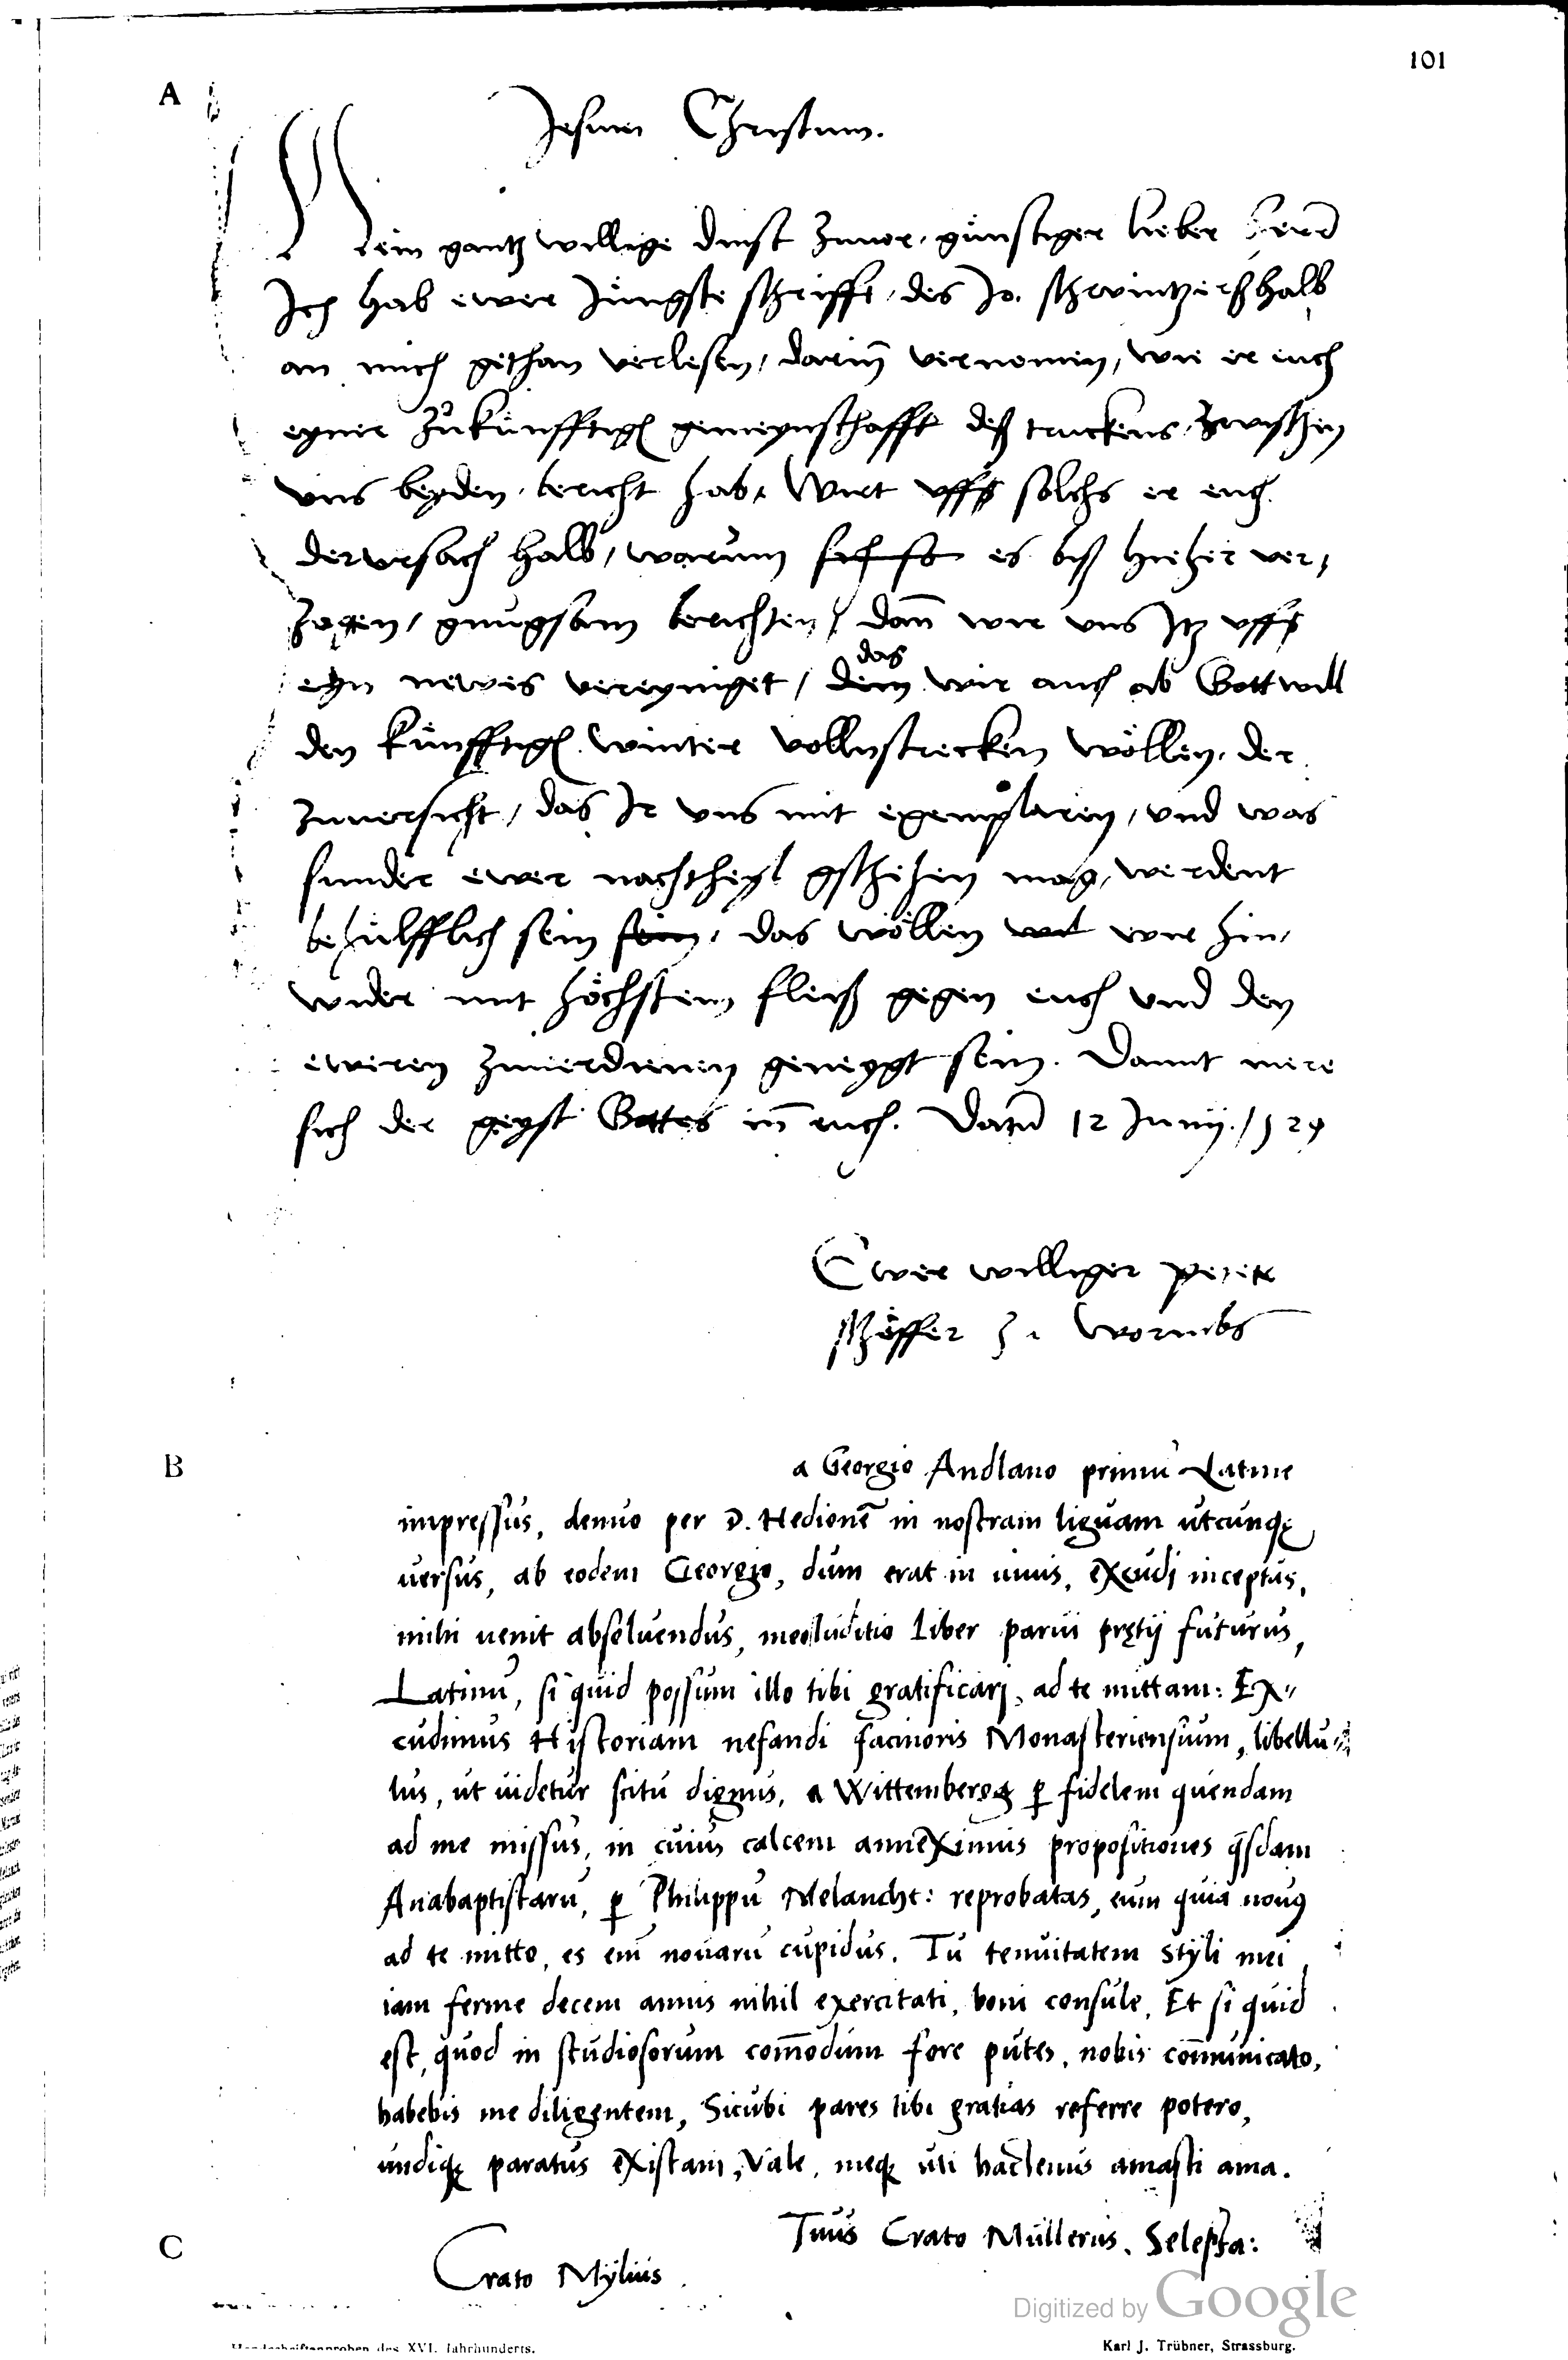 101
A
Jesum Christum.
Mein gantz willige dinst zuuor, günstiger lieber herr
Ich hab ewer Jüngste schrifft, des Jo. schwintzers halb
an mich gethan verlesen, darin vernomen, wie er euch
eyner zukünfftigen gemeynschafft deß truckens, zwischen
vns beyden, bericht hab, Wirt vff solchs er euch
der vrsach halb, warum es biß hieher ver,
zogen, gnugsam berichten, dan̄ wir vns Itz vffs
das
eyn newes vereyniget, dem wir auch ob Gott will
den künfftigen winter vollnstrecken wöllen, der
zuuersicht, das Ir vns mit exemplaren, vnd was
sunder ewer nachtheyl gschehen mag, werdent
behülfflich sein sein, das wöllen wir hin,
wider mit höchstem fleiß gegen euch vnd den
eweren zuuerdienen geneygt sein. Damit mere
sich der geyst Gottes in̄ euch. Datū 12 Junij. 1529
Ewer williger peter
schöffer zu wormbs
B
a Georgio Andlano primū Latine
impressus, denuo per D. Hedionē in nostram liguam utcunqȝ
uersus, ab eodem Georgio, dum erat in uiuis, excudi inceptus,
mihi uenit absoluendus, meo iuditio liber parui pretij futurus,
Latinū, si quid possum illo tibi gratificari, ad te mittam: Ex-
cudimus Historiam nefandi facinoris Monasteriensium, libellu-
lus, ut uidetur scitu dignus, a Wittemberga ꝑ fidelem quendam
ad me missus, in cuius calcem anneximus propositiones q̄sdam
Anabaptistarū, ꝑ Philippū Melancht: reprobatas, eum quia nouus
ad te mitto, es em̄ nouarū cupidus. Tu tenuitatem styli mei
iam ferme decem annis nihil exercitati, boni consule, Et si quid
est, quod in studiosorum com̄odum fore putes, nobis com̄unicato,
habebis me diligentem, Sicubi pares tibi gratias referre potero,
undiqȝ paratus existam, Vale, meqȝ uti hactenus amasti ama.
Tuus Crato Mullerus. Selesta:
C
Crato Mylius.
Digitized by Google
Handschriftenproben des XVI. Jahrhunderts.
Karl J. Trübner, Strassburg.